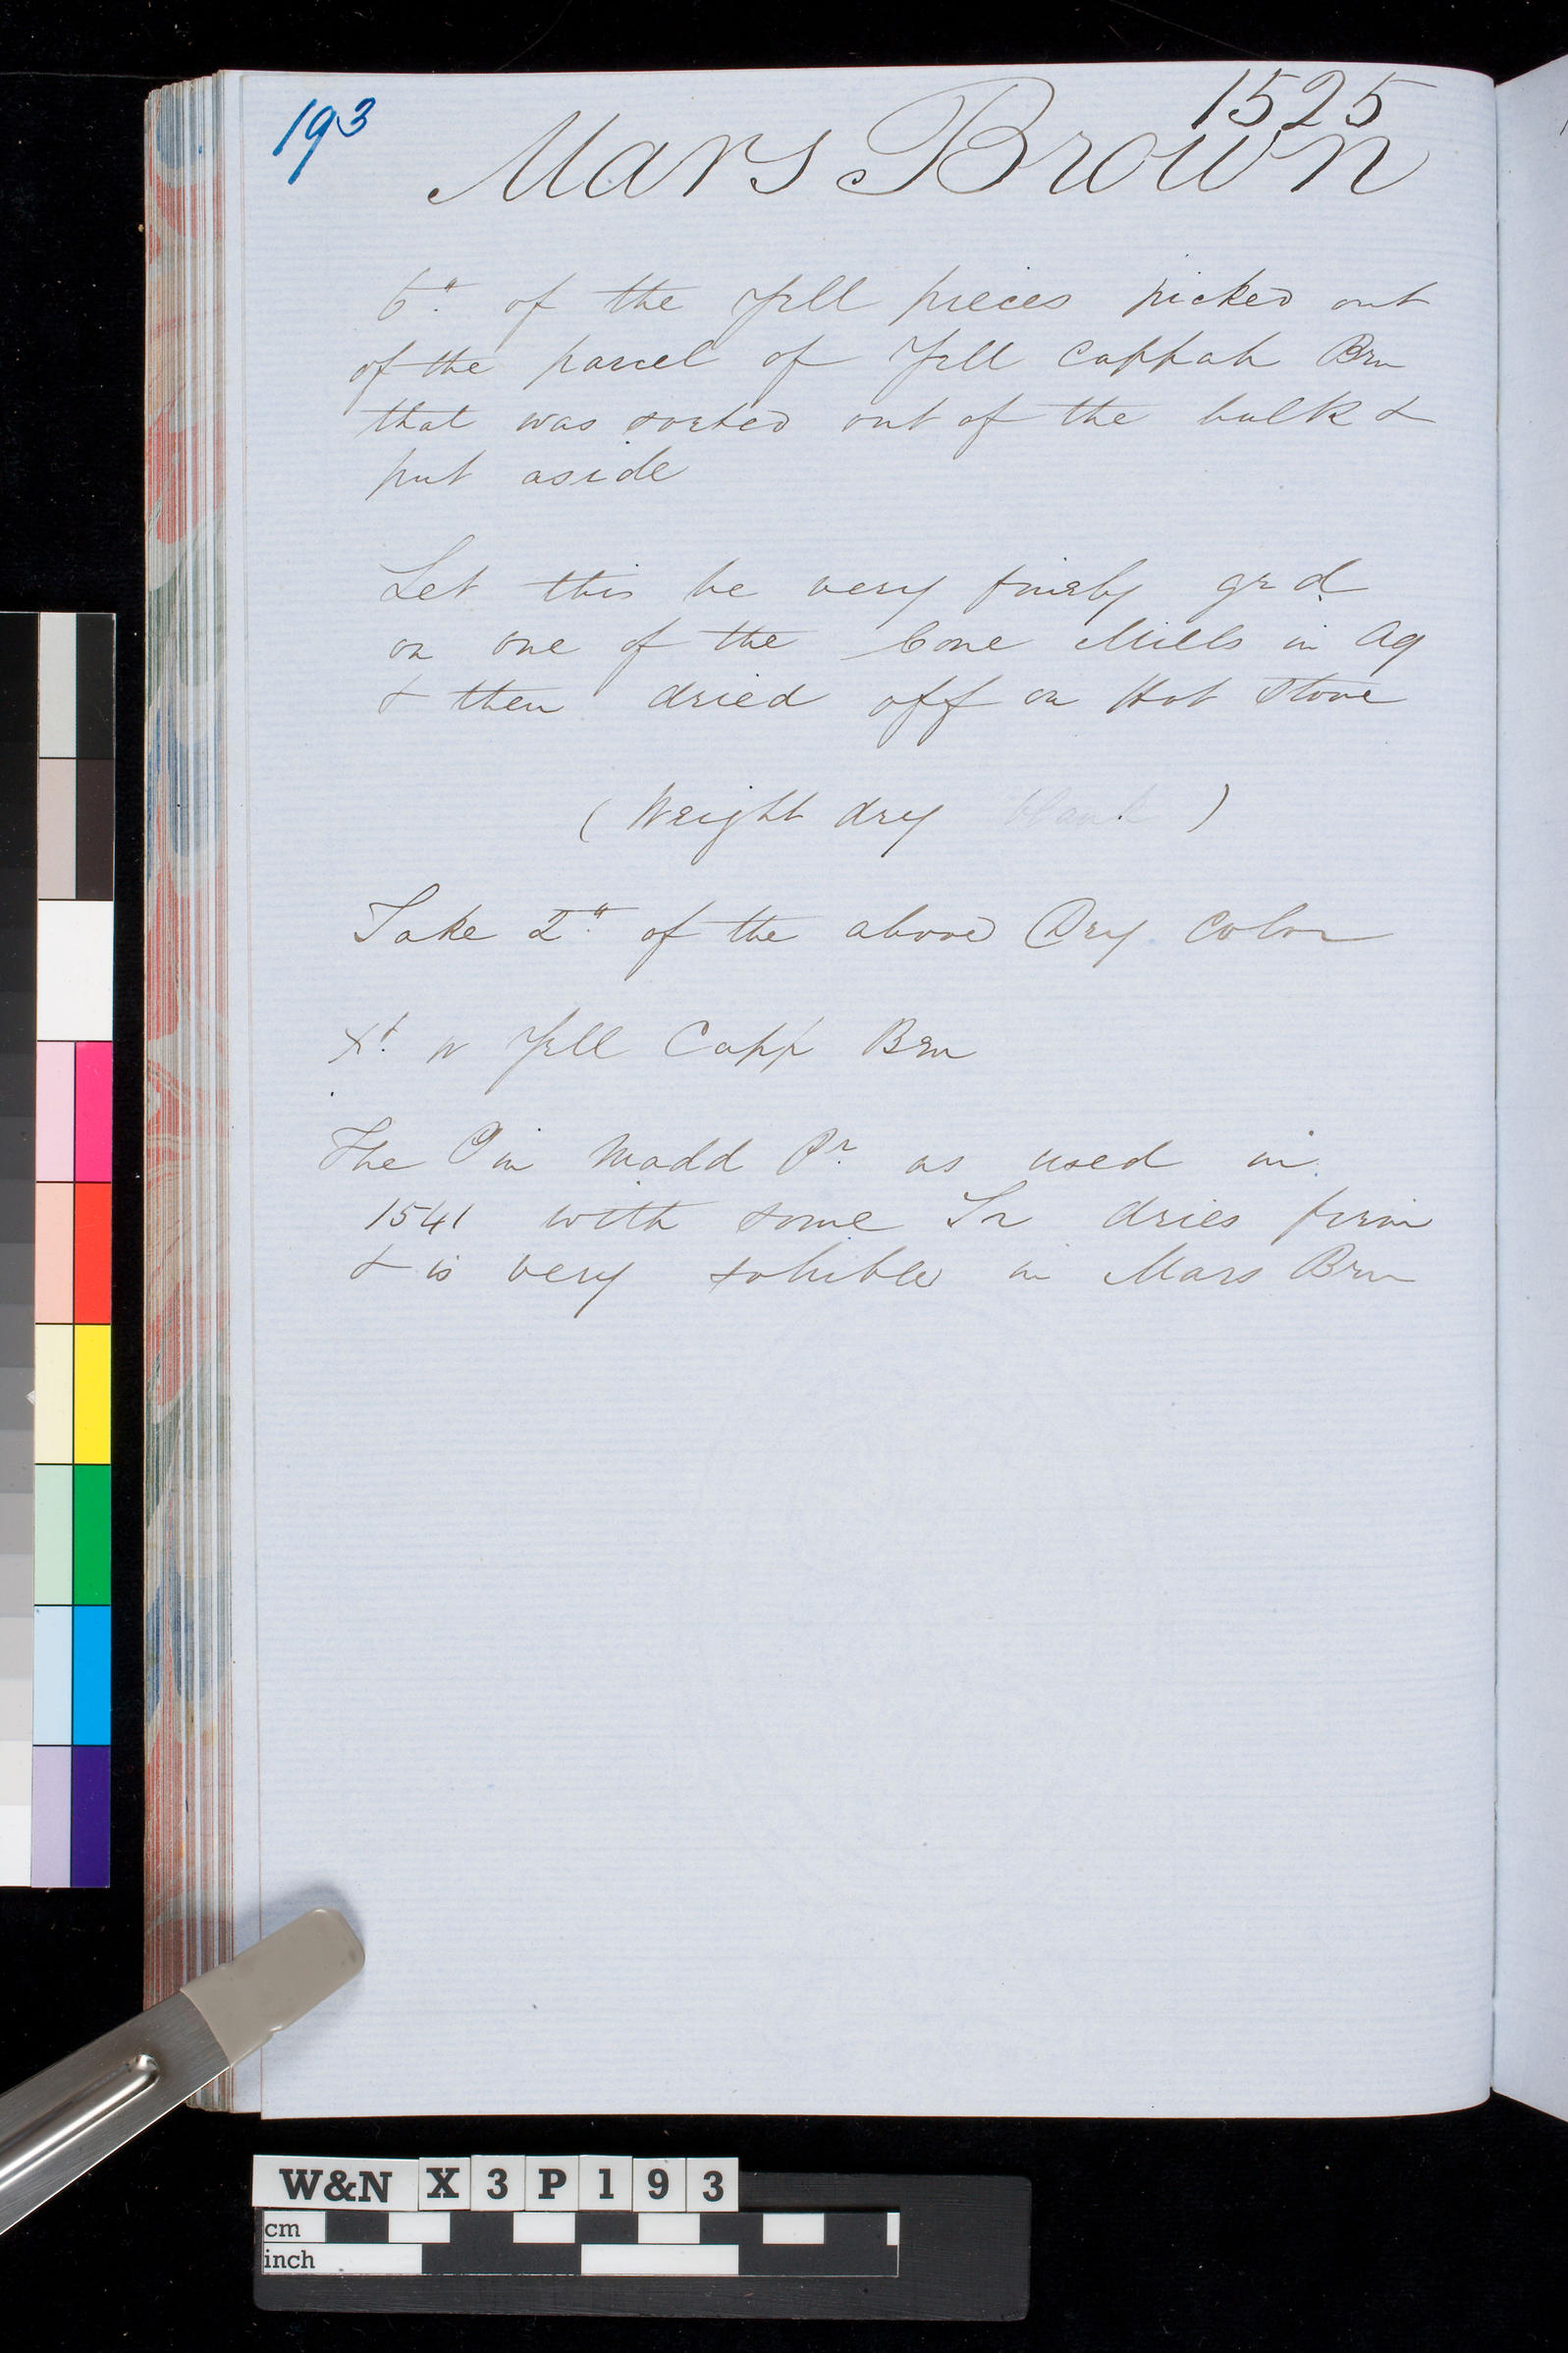 193
1525
Mars Brown
6" of the Yell pieces picked out
of the parcel of Yell Cappah Brn
that was sorted out of the bulk &
put aside
Let this be very finely grd
on one of the Cone Mills in Aq
& then dried off on Hot Stove
( Weight dry blank )
Take 2" of the above Dry Color
Xt. w Yell Capp Brn
The in Madd Pr. as used in
1541 with some Tr dries firm
& is very soluble in Mars Brn
W&N X3P193
cm
inch